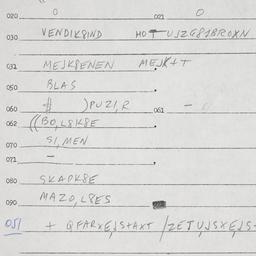 020 0 021 0
030 VENDIK8IND HOT UJZG81BROXN
031 MEJK8ENEN MEJK+T
050 BLAS
060 # )PUZI,R 061 -
062 ((BO,L8K8E
070 SI,MEN
071 -
080 SKADK8E
090 MAZO,L8ES
051 + QFARXEJS+AXT /ZETUJSXEJS+